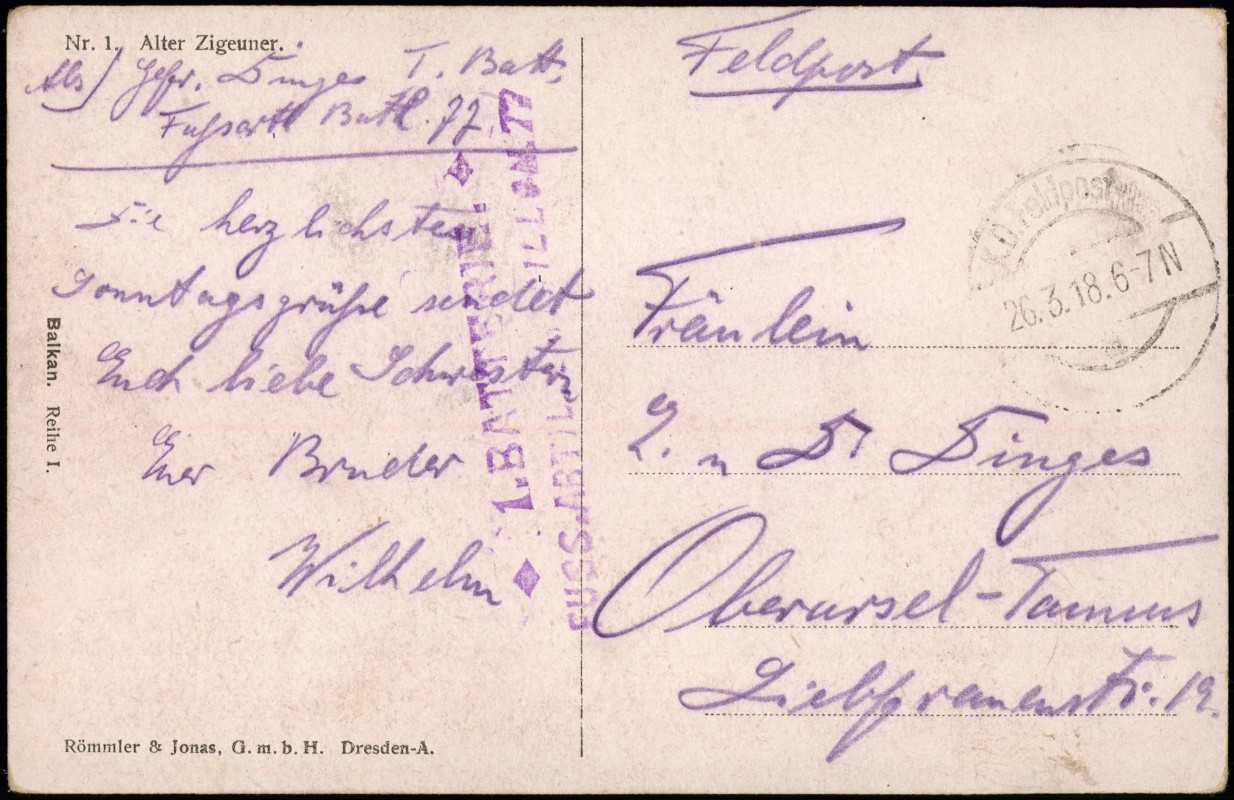 Nr. 1. Alter Zigeuner.
Abs) Gefr. Dinges 1. Batt.
Fußartl Batl. 77.
Die herzlichsten
Sonntagsgrüße sendet
Euch liebe Schwestern
Euer Bruder
Wilhelm
Balkan. Reihe I.
Römmler & Jonas, G. m. b. H. Dresden-A.
1. BATTERIE.
FUSS-ARTILL BATAILLON 77
Feldpost
K.D. Feldpost
26.3.18.6-7N
Fräulein
L. u Dinges
Oberursel-Taunus
Liebfrauenstr. 19.